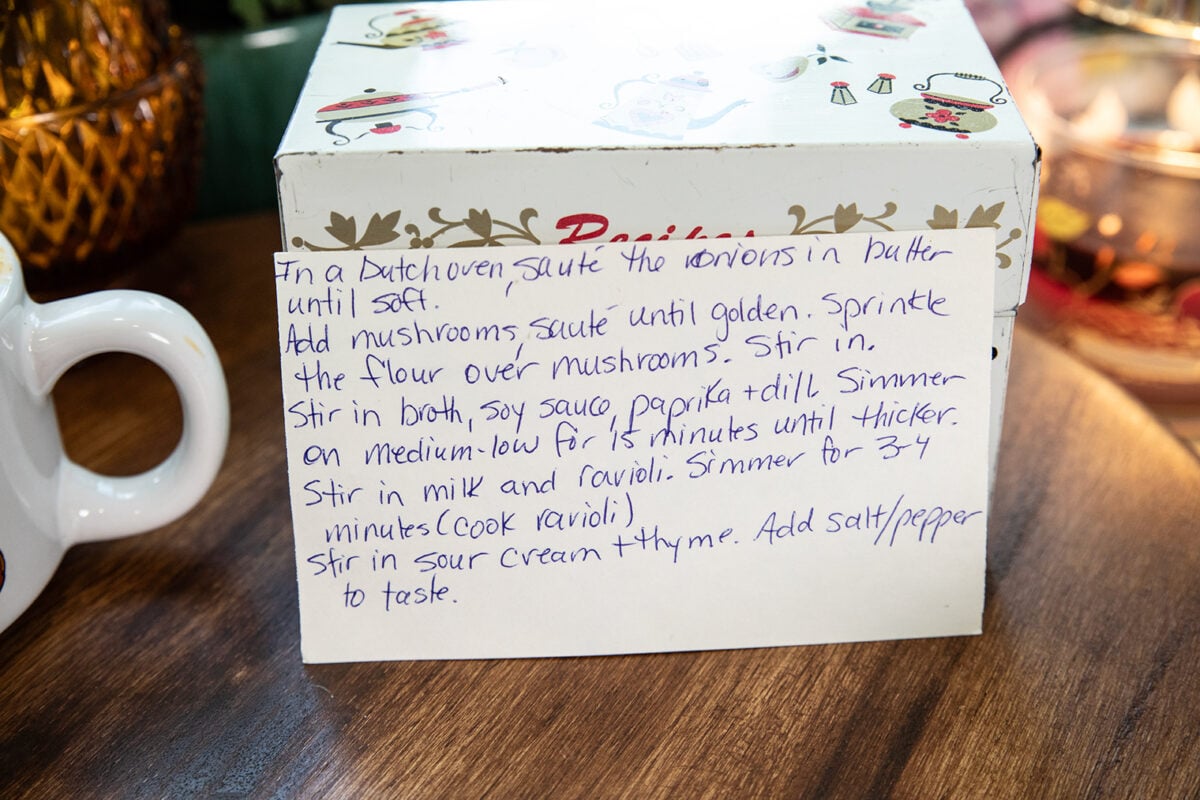 Recipes
In a Dutch oven, sauté the onions in butter
until soft.
Add mushrooms, sauté until golden. Sprinkle
the flour over mushrooms. Stir in.
Stir in broth, soy sauce, paprika + dill. Simmer
on medium-low for 15 minutes until thicker.
Stir in milk and ravioli. Simmer for 3-4
minutes (cook ravioli)
Stir in sour cream + thyme. Add salt/pepper
to taste.